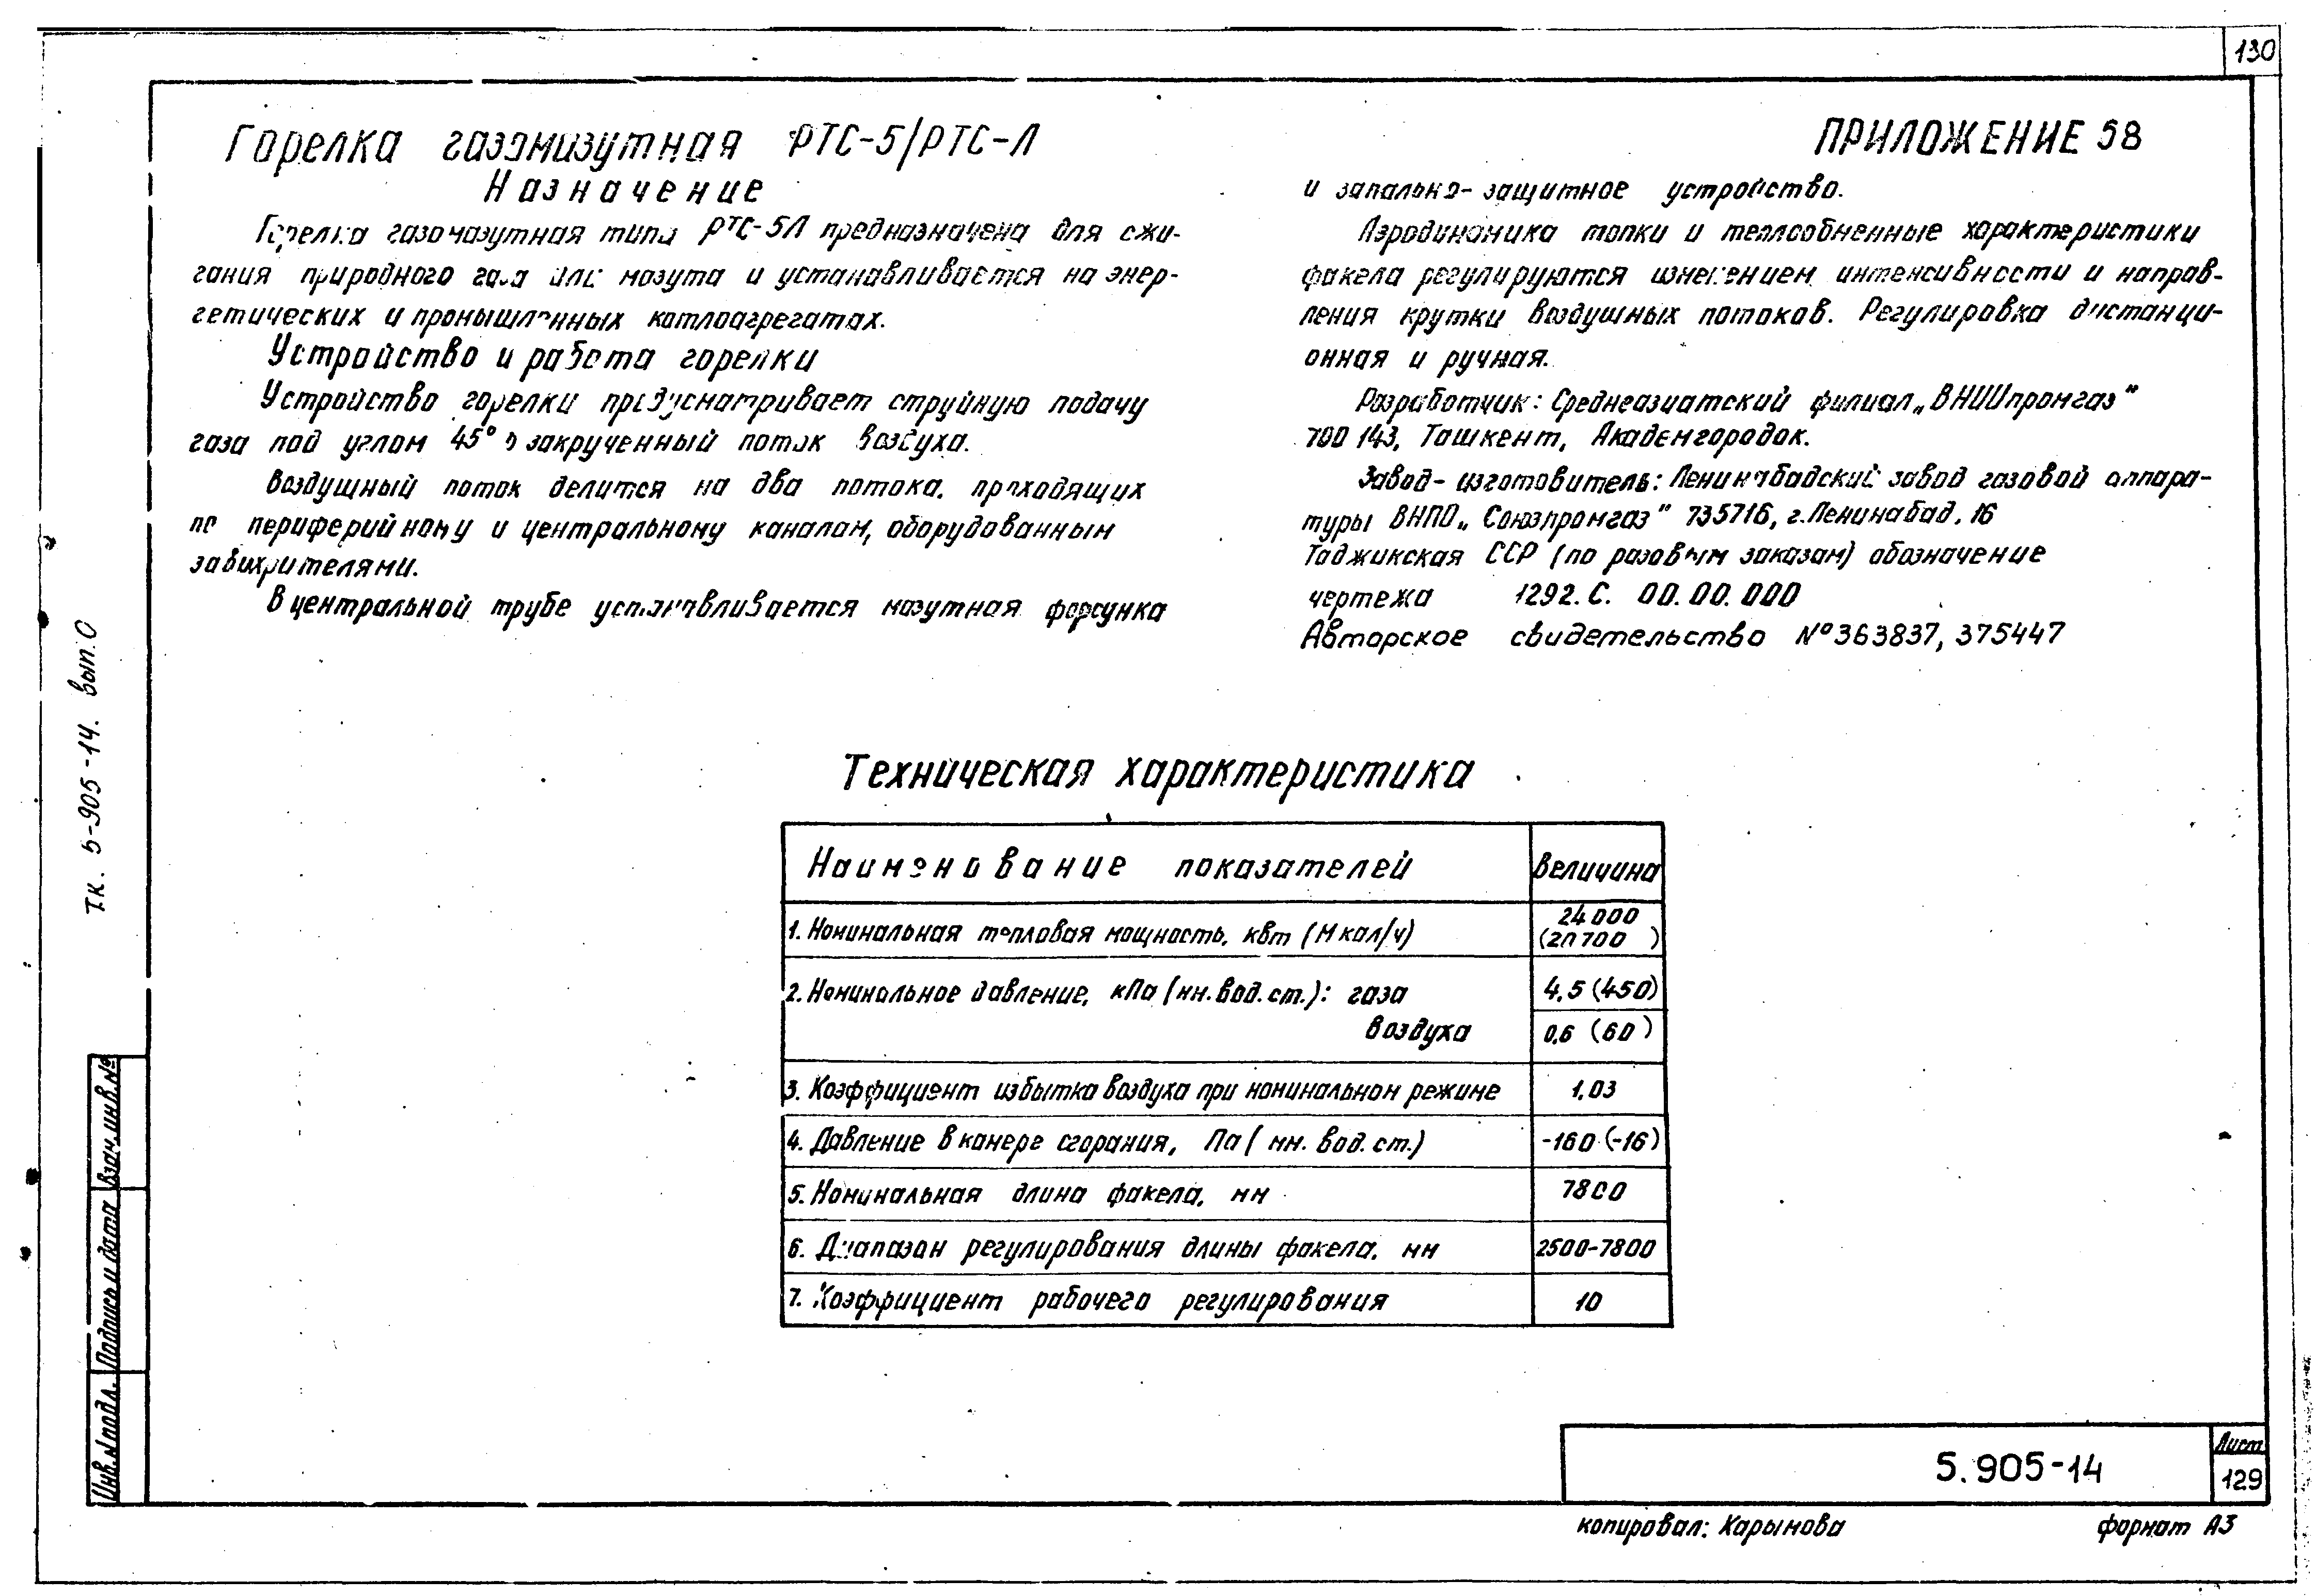 130
Горелка газомазутная РТС-5/РТС-Л
Назначение
Горелка газомазутная типа РТС-5Л предназначена для сжи-
гания природного газа или мазута и устанавливается на энер-
гетических и промышленных котлоагрегатах.
Устройство и работа горелки
Устройство горелки предусматривает струйную подачу
газа под углом 45° в закрученный поток воздуха.
Воздушный поток делится на два потока, проходящих
по периферийному и центральному каналам, оборудованным
завихрителями.
В центральной трубе устанавливается мазутная форсунка
ПРИЛОЖЕНИЕ 58
и запально-защитное устройство.
Аэродинамика топки и теплообменные характеристики
факела регулируются изменением интенсивности и направ-
ления крутки воздушных потоков. Регулировка дистанци-
онная и ручная.
Разработчик: Среднеазиатский филиал „ВНИИпромгаз"
700 143, Ташкент, Академгородок.
Завод-изготовитель: Ленинабадский завод газовой аппара-
туры ВНПО „Союзпромгаз" 735716, г. Ленинабад, 16
Таджикская ССР (по разовым заказам) обозначение
чертежа 1292.С. 00.00.000
Авторское свидетельство №363837, 375447
Техническая характеристика
Наименование показателей Величина
1. Номинальная тепловая мощность, квт (Мкал/ч) 24000
(20700)
2. Номинальное давление, кПа (мм. вод. ст.): газа 4,5 (450)
воздуха 0,6 (60)
3. Коэффициент избытка воздуха при номинальном режиме 1,03
4. Давление в камере сгорания, Па (мм. вод. ст.) -160 (-16)
5. Номинальная длина факела, мм 7800
6. Диапазон регулирования длины факела, мм 2500-7800
7. Коэффициент рабочего регулирования 10
Т.К. 5-905-14. вып. 0
Взам. инв. №
Подпись и дата
Инв. № подл.
5.905-14
Лист
129
копировал: Карымова формат А3